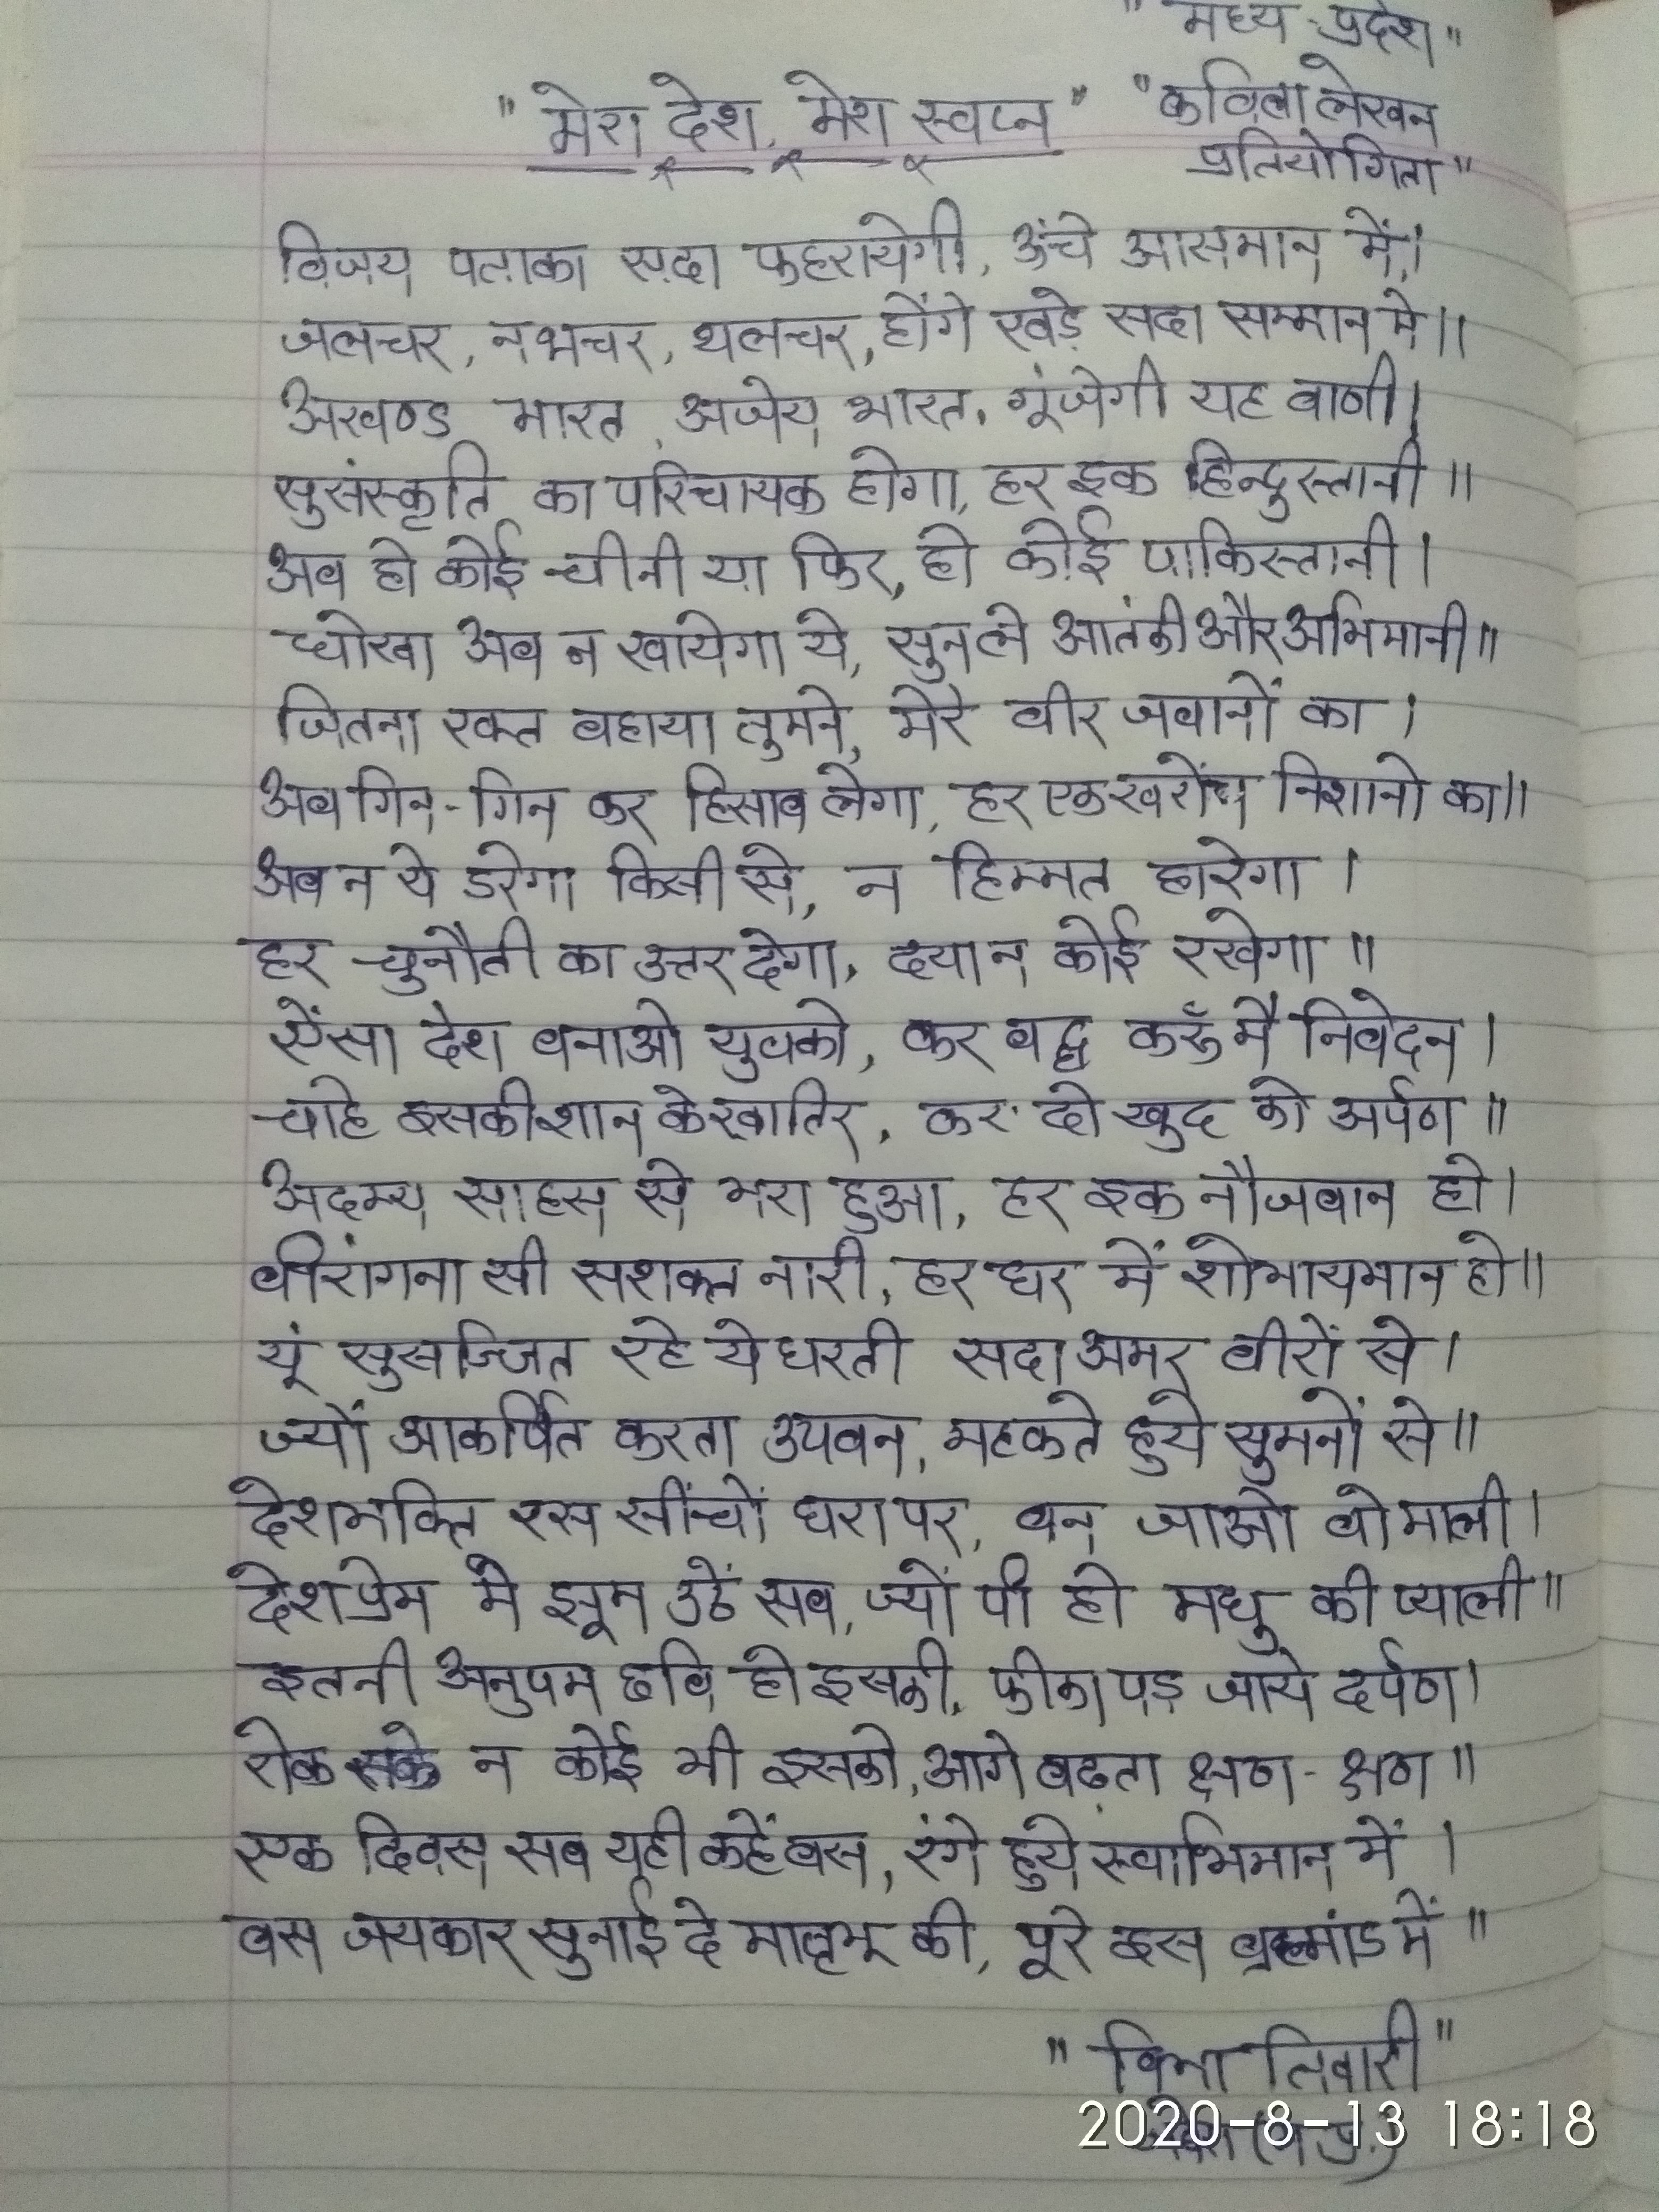 "मध्य-प्रदेश"
"मेरा देश, मेरा स्वप्न" "कविता लेखन
प्रतियोगिता"
विजय पताका सदा फहरायेगी, ऊंचे आसमान में।
जलचर, नभचर, थलचर, होंगे खड़े सदा सम्मान मे॥
अखण्ड भारत, अजेय भारत, गूंजेगी यह वाणी।
सुसंस्कृति का परिचायक होगा, हर इक हिन्दुस्तानी॥
अब हो कोई चीनी या फिर, हो कोई पाकिस्तानी।
धोखा अब न खायेगा ये, सुनले आतंकी और अभिमानी॥
जितना रक्त बहाया तुमने, मेरे वीर जवानों का।
अब गिन-गिन कर हिसाब लेगा, हर एक खरोंच निशानो का॥
अब न ये डरेगा किसी से, न हिम्मत हारेगा।
हर चुनौती का उत्तर देगा, दया न कोई रखेगा॥
ऐंसा देश बनाओ युवको, कर बद्ध करुँ मै निवेदन।
चाहे इसकी शान के खातिर, कर दो खुद को अर्पण॥
अदम्य साहस से भरा हुआ, हर इक नौजवान हो।
वीरांगना सी सशक्त नारी, हर घर में शोभायमान हो॥
यूं सुसज्जित रहे ये धरती सदा अमर वीरों से।
ज्यों आकर्षित करता उपवन, महकते हुये सुमनों से॥
देशभक्ति रस सींचों धरा पर, बन जाओ वो माली।
देशप्रेम मे झूम उठें सब, ज्यों पी हो मधु की प्याली॥
इतनी अनुपम छवि हो इसकी, फीका पड़ जाये दर्पण।
रोक सके न कोई भी इसको, आगे बढ़ता क्षण-क्षण॥
एक दिवस सब यही कहें बस, रंगे हुये स्वाभिमान में।
बस जयकार सुनाई दे मातृभू की, पूरे इस ब्रह्मांड में॥
"विभा तिवारी"
2020-8-13 18:18